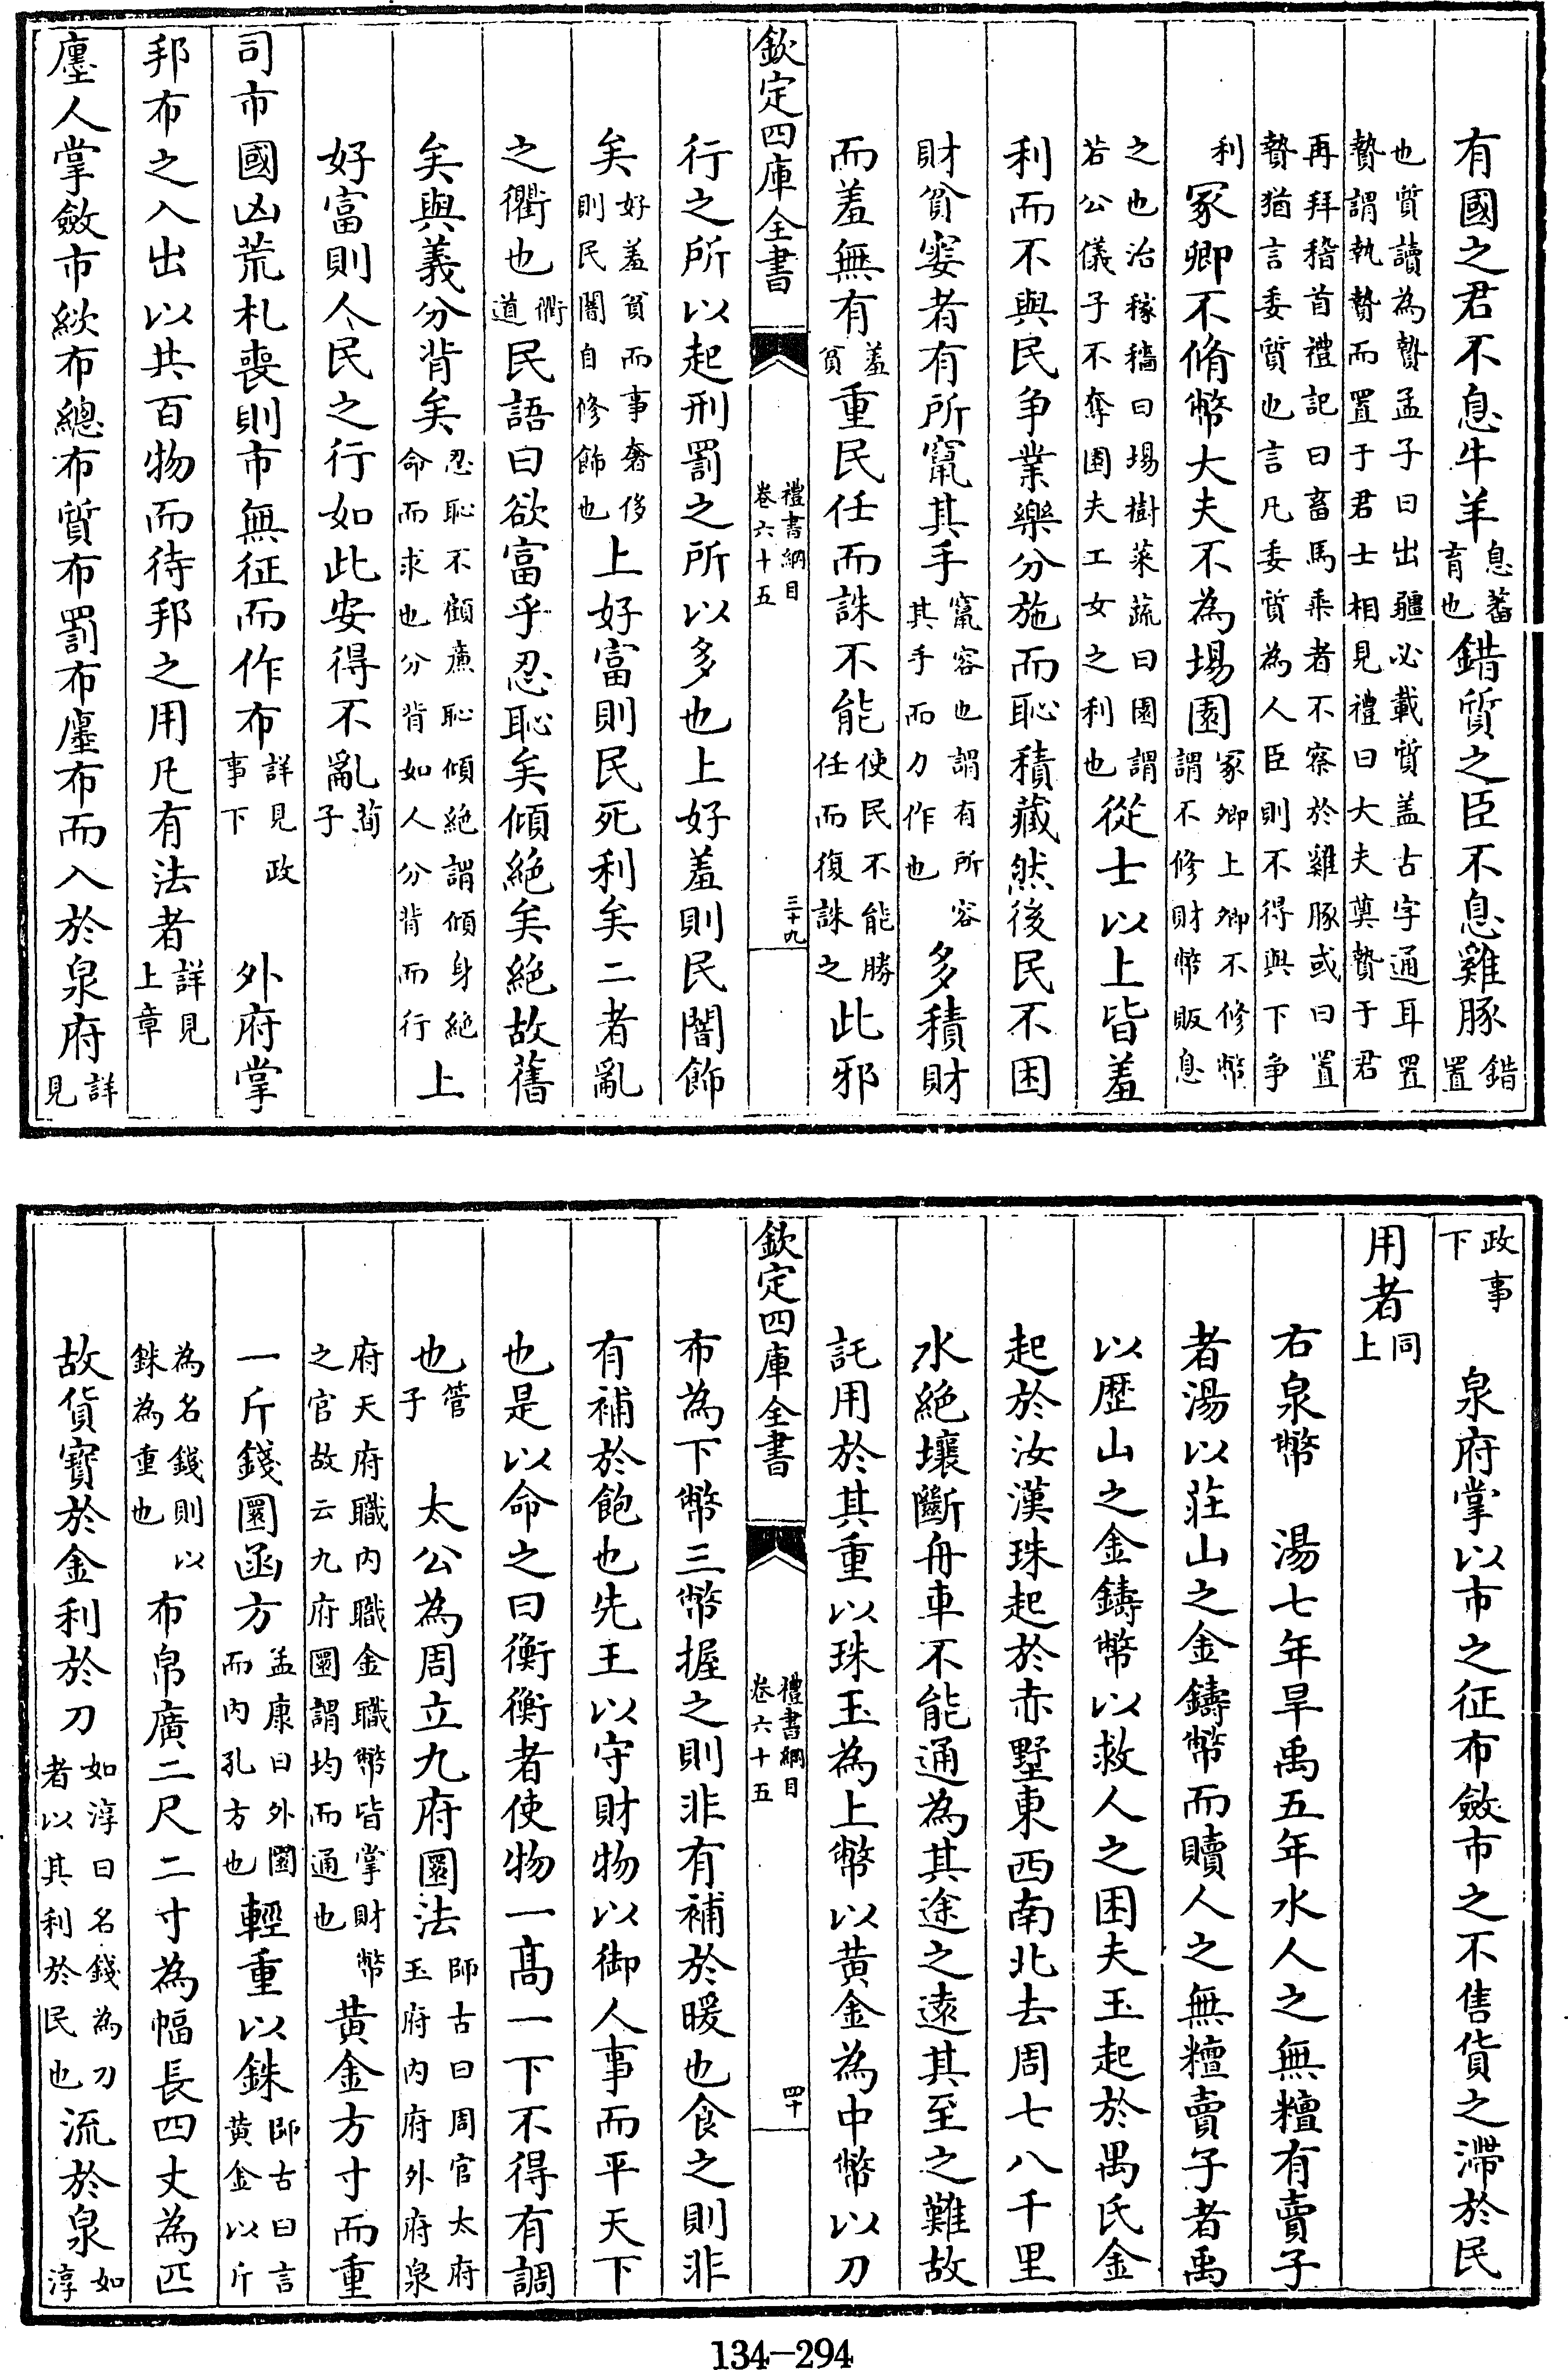 有國之君不息牛羊息蕃育也錯質之臣不息雞豚錯置
也質讀為贄孟子曰出疆必載質盖古字通耳置贄謂執贄而置于君士相見禮曰大夫奠贄于君
再拜稽首禮記曰畜馬乘者不察於雞豚或曰置贄猶言委質也言凡委質為人臣則不得與下争
利冢卿不脩幣大夫不為場園冢卿上卿不修幣謂不修財幣販息
之也治稼穡曰場樹菜蔬曰園謂若公儀子不奪園夫工女之利也從士以上皆羞
利而不與民争業樂分施而恥積藏然後民不困
財貧窭者有所竄其手竄容也謂有所容其手而力作也多積財
而羞無有羞貧重民任而誅不能使民不能勝任而復誅之此邪
欽定四庫全書 禮書綱目卷六十五 三十九
行之所以起刑罰之所以多也上好羞則民闇飾
矣好羞貧而事奢侈則民闇自修飾也上好富則民死利矣二者亂
之衢也衢道民語曰欲富乎忍恥矣傾絶矣絶故舊
矣與義分背矣忍恥不顧廉恥傾絶謂傾身絶命而求也分背如人分背而行上
好富則人民之行如此安得不亂荀子
司市國凶荒札喪則市無征而作布詳見政事下 外府掌
邦布之入出以共百物而待邦之用凡有法者詳見上章
廛人掌斂市絘布總布質布罰布廛布而入於泉府詳見
政事下 泉府掌以市之征布斂市之不售貨之滯於民
用者同上
右泉幣 湯七年旱禹五年水人之無䊲有賣子
者湯以莊山之金鑄幣而贖人之無䊲賣子者禹
以歴山之金鑄幣以救人之困夫玉起於禺氏金
起於汝漢珠起於赤墅東西南北去周七八千里
水絶壤斷舟車不能通為其途之逺其至之難故
託用於其重以珠玉為上幣以黄金為中幣以刀
欽定四庫全書 禮書綱目卷六十五 四十
布為下幣三幣握之則非有補於暖也食之則非
有補於飽也先王以守財物以御人事而平天下
也是以命之曰衡衡者使物一髙一下不得有調
也管子 太公為周立九府圜法師古曰周官太府玉府内府外府泉
府天府職内職金職幣皆掌財幣之官故云九府圜謂均而通也黄金方寸而重
一斤錢圜函方孟康曰外圜而内孔方也輕重以銖師古曰言黄金以斤
為名錢則以銖為重也布帛廣二尺二寸為幅長四丈為匹
故貨寳於金利於刀如淳曰名錢為刀者以其利於民也流於泉如淳
134-294